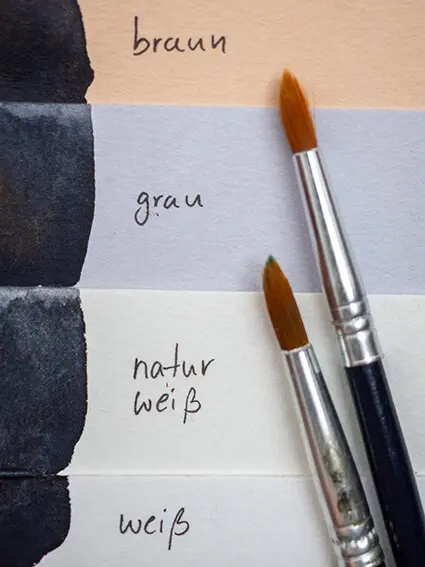 braun
grau
natur
weiß
weiß